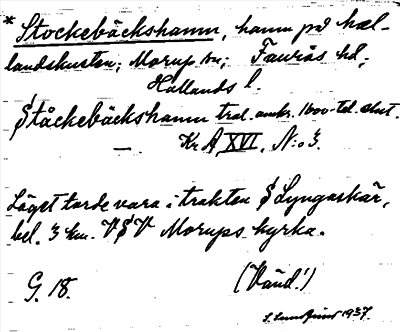 * Stockebäckshamn, hamn på Hal-
landskusten; Morup sn; Faurås hd;
Hallands l.
Ståckebäckshamn trol. omkr. 1600-tal. slut.
Kr. A. XVI. N:o 3.
Läget torde vara i trakten § Lyngaskär,
bel. 3 km. VSV Morups kyrka.
G. 18. (Vänd!)
1937.